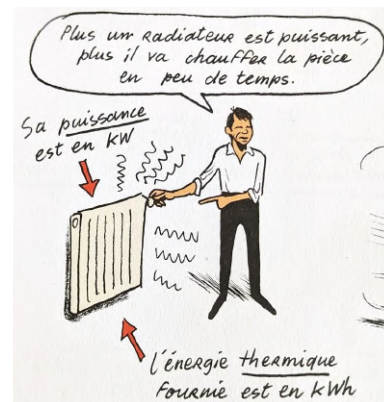 Plus un radiateur est puissant,
plus il va chauffer la pièce
en peu de temps.
Sa puissance
est en kW
l'énergie thermique
fournie est en kWh